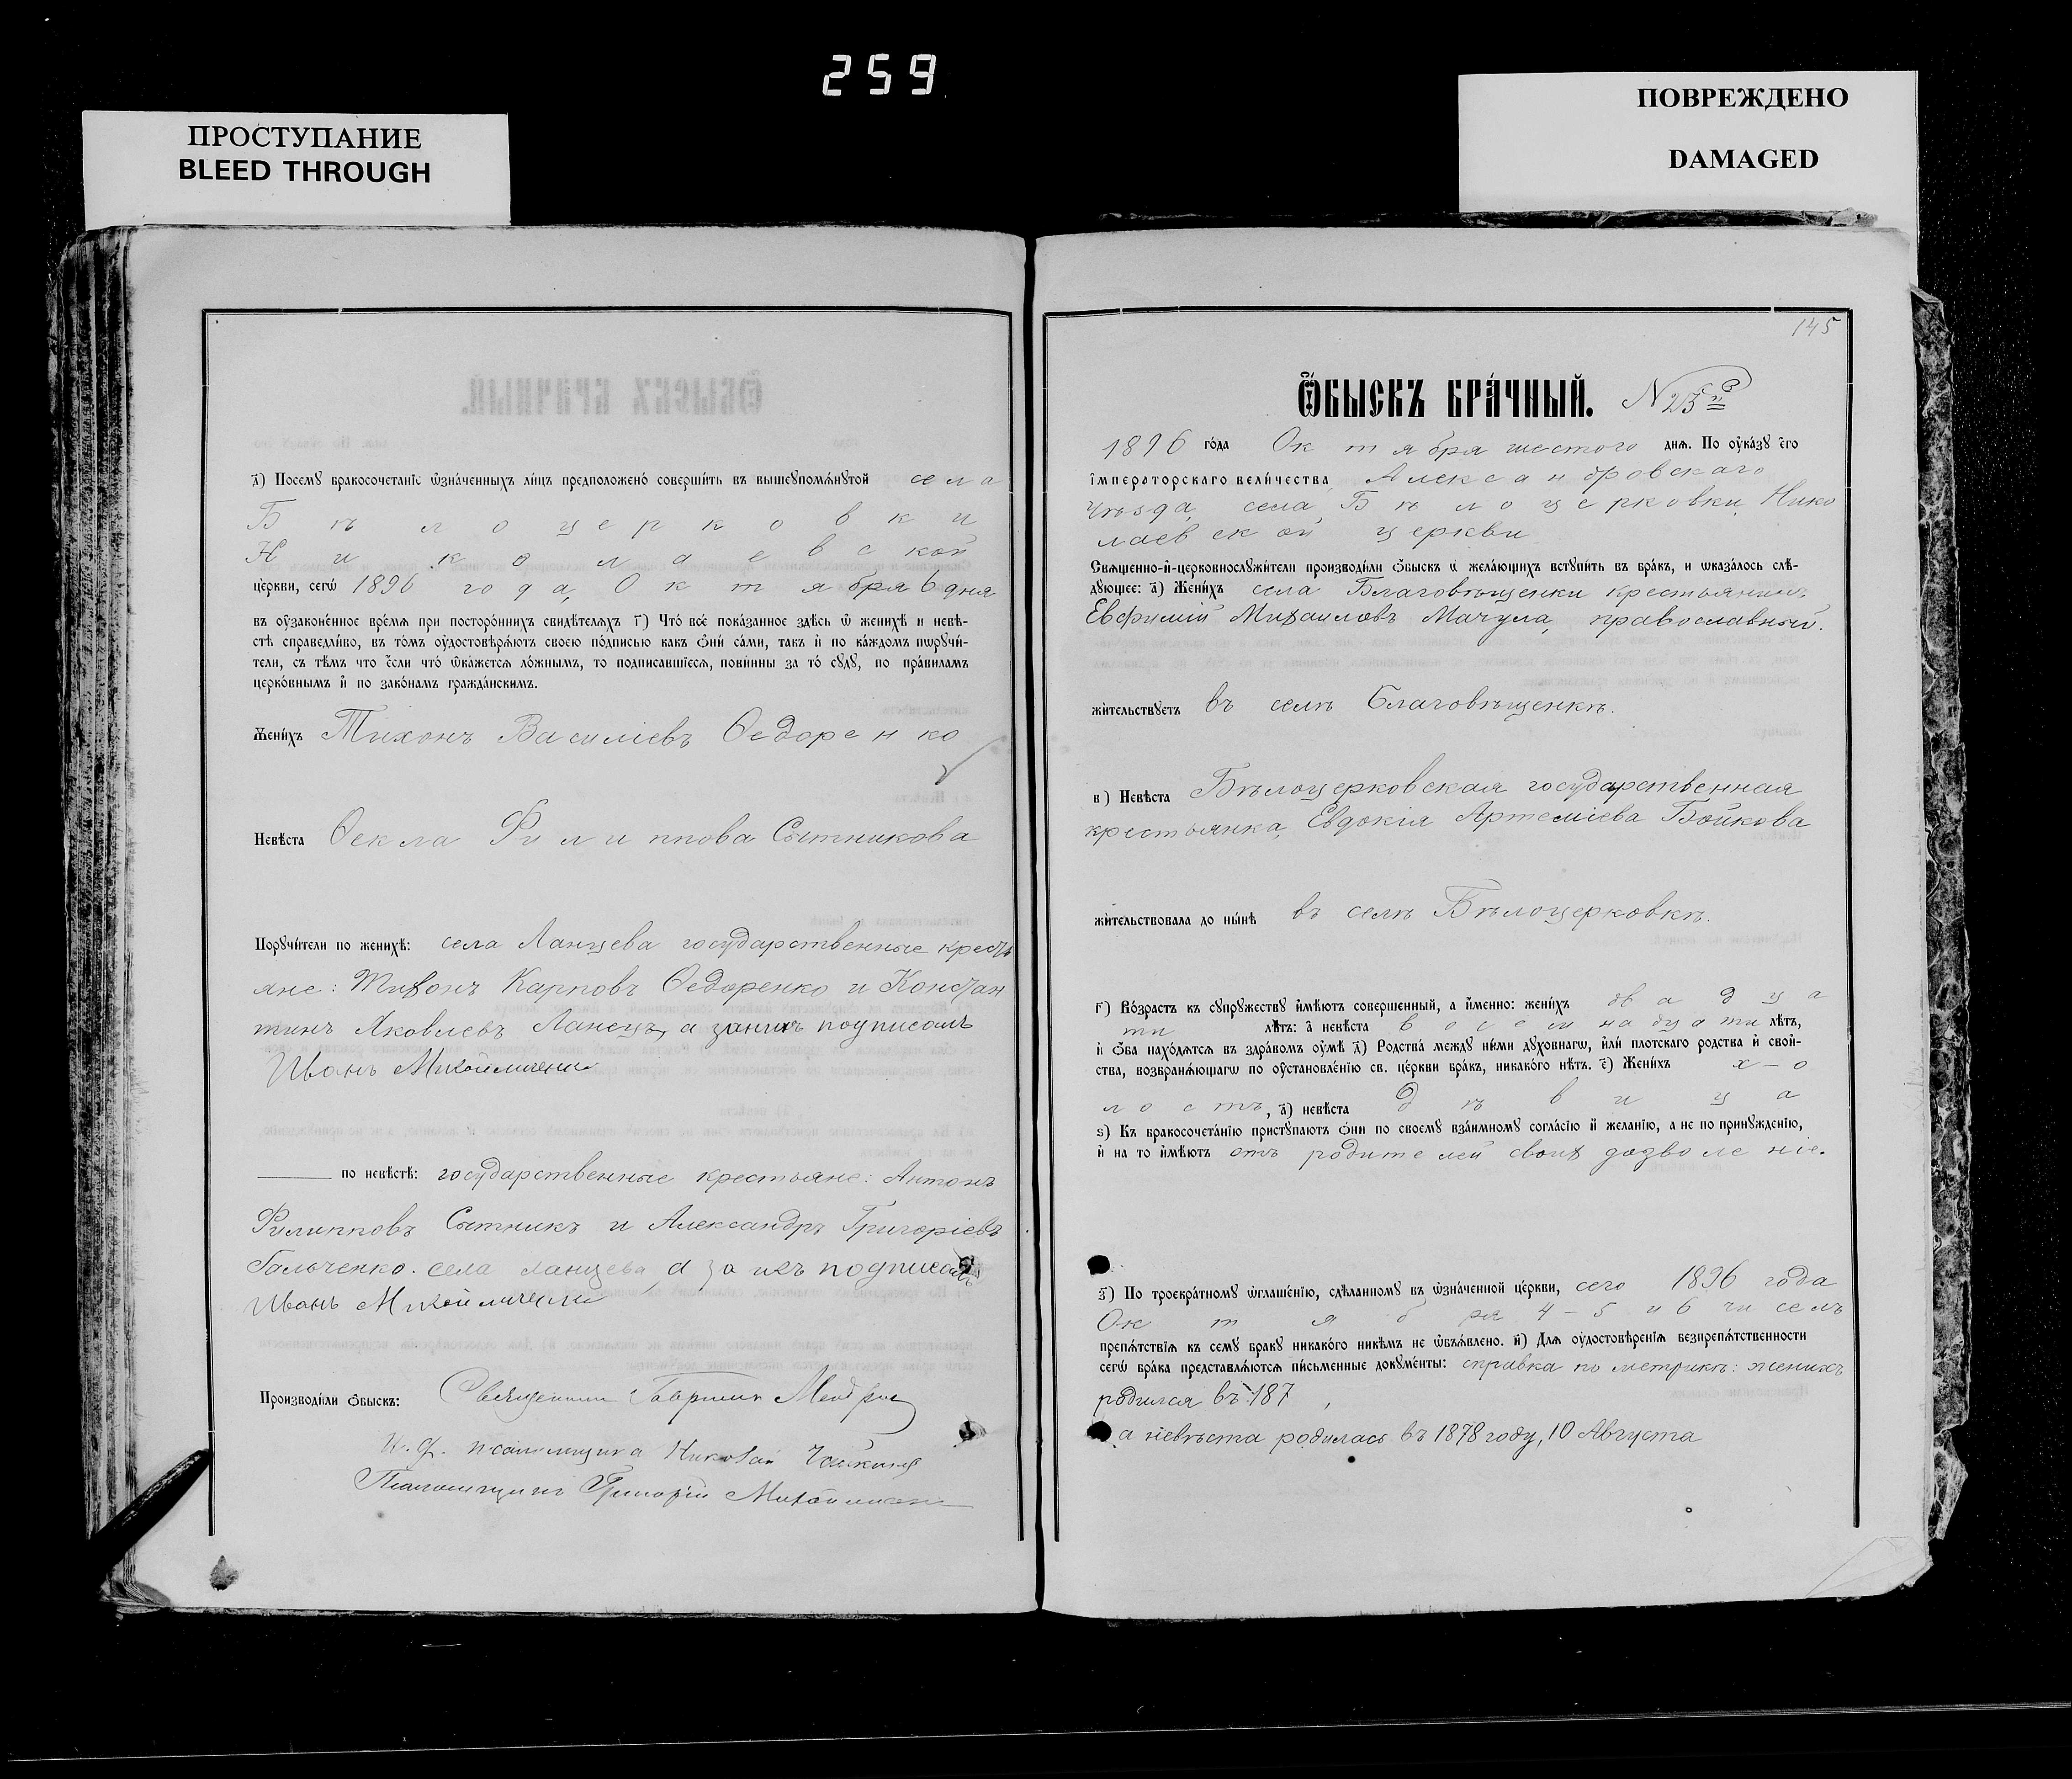 259
ПРОСТУПАНИЕ
BLEED THROUGH
ПОВРЕЖДЕНО
DAMAGED
д҃) Посемꙋ бракосочетаніе ѡзна́ченныхъ ли́цъ предположено́ соверши́ть въ вышеꙋпомѧ́нꙋтой села
Бѣлоцерковки
Николаевской
це́ркви, сегѡ̀ 1896 года, Октября 6 дня
въ оу҆зако́ненное вре́мѧ при посторо́ннихъ свидѣ́телѧхъ г҃) Что̀ всѐ пока́занное здѣ́сь ѡ женихѣ̀ и невѣ́-
стѣ справедли́во, въ то́мъ оу҆достовѣрѧ́ютъ своею по́дписью какъ ѻ҆нѝ са́ми, такъ и҆ по ка́ждомъ пѡрꙋчи́-
тели, съ тѣ́мъ что є҆́сли что̀ ѡ҆ка́жетсѧ ло́жнымъ, то подписавшіесѧ, пови́нны за то̀ сꙋдꙋ̀, по пра́виламъ
церко́внымъ и҆ по зако́намъ гражда́нскимъ.
Жени́хъ Тихонъ Василіевъ Ѳедоренко
Невѣ́ста Ѳекла Филиппова Сытникова
Порꙋчи́тели по женихѣ̀: села Ланцева государственные кресть
яне: Тихонъ Карповъ Ѳедоренко и Констан
тинъ Яковлевъ Ланецъ, а за нихъ подписалъ
Иванъ
по невѣ́стѣ: государственные крестьяне: Антонъ
Филипповъ Сытникъ и Александръ Григоріевъ
Гальченко. села Ланцева, а за ихъ подписалъ
Иванъ
Производи́ли ѻ҆́быскъ: Священник Гавриил
и. д. псаломщика Николай
Псаломщикъ Григорій
145
Ѻ҆́БЫСКЪ БРА́ЧНЫЙ. N 25
1896 го́да Октября шестого днѧ. По оу҆ка́зꙋ є҆гѡ̀
і҆мператорскаго вели́чества Александровскаго
уѣзда, села Бѣлоцерковки Нико
лаевской церкви
Свѧщенно-и҆-церковнослꙋжи́тели производи́ли ѻ҆́быскъ ѡ҆ жела́ющихъ встꙋпи́ть въ бра́къ, и ѡказа́лось слѣ́-
дꙋющее: а҃) Жени́хъ села Благовѣщенки крестьянинъ
Евфимій Михаиловъ Мачула, православный.
жи́тельствꙋетъ въ селѣ Благовѣщенкѣ.
в҃) Невѣ́ста Бѣлоцерковская государственная
крестьянка, Евдокія Артеміева Бойкова
жи́тельствовала до ны́нѣ въ селѣ Бѣлоцерковкѣ.
г҃) Во́зрастъ къ сꙋпрꙋжествꙋ и҆мѣ́ютъ совершенный, а и҆́менно: жени́хъ двадца
ти лѣ́тъ: а҆ невѣ́ста восемнадцати лѣ́тъ,
и҆ ѻ҆́ба нахо́дѧтсѧ въ здра́вомъ оу҆мѣ̀ д҃) Родства̀ междꙋ ни́ми дꙋховнагѡ, и҆лѝ плотскаго родства и҆ свой-
ства, возбранѧ́ющагѡ по оу҆становле́нію св. це́ркви бра́къ, никако́го нѣ́тъ. є҃) Жени́хъ хо-
лостъ, а҆) невѣ́ста дѣвица
ѕ҃) Къ бракосочета́нію пристꙋпаютъ ѻ҆нѝ по своемꙋ взаи́мномꙋ согла́сію и҆ жела́нію, а не по принꙋжденію,
и҆ на то и҆мѣ́ютъ отъ родителей своихъ дозволеніе.
з҃) По троекра́тномꙋ ѡ҆глаше́нію, сдѣ́ланномꙋ въ ѡ҆зна́ченной це́ркви, сего 1896 года
Октября 4-5 и 6 чиселъ
препѧ́тствіѧ къ семꙋ бракꙋ никако́го никѣ́мъ не ѡ҆бъѧ́влено. и҃) Длѧ оу҆достовѣ́реніѧ безпрепѧ́тственности
сегѡ̀ бра́ка представлѧ́ютсѧ пи́сьменные докꙋме́нты: справка по метрикѣ: женихъ
родился въ 187 ,
а невѣста родилась въ 1878 году, 10 Августа